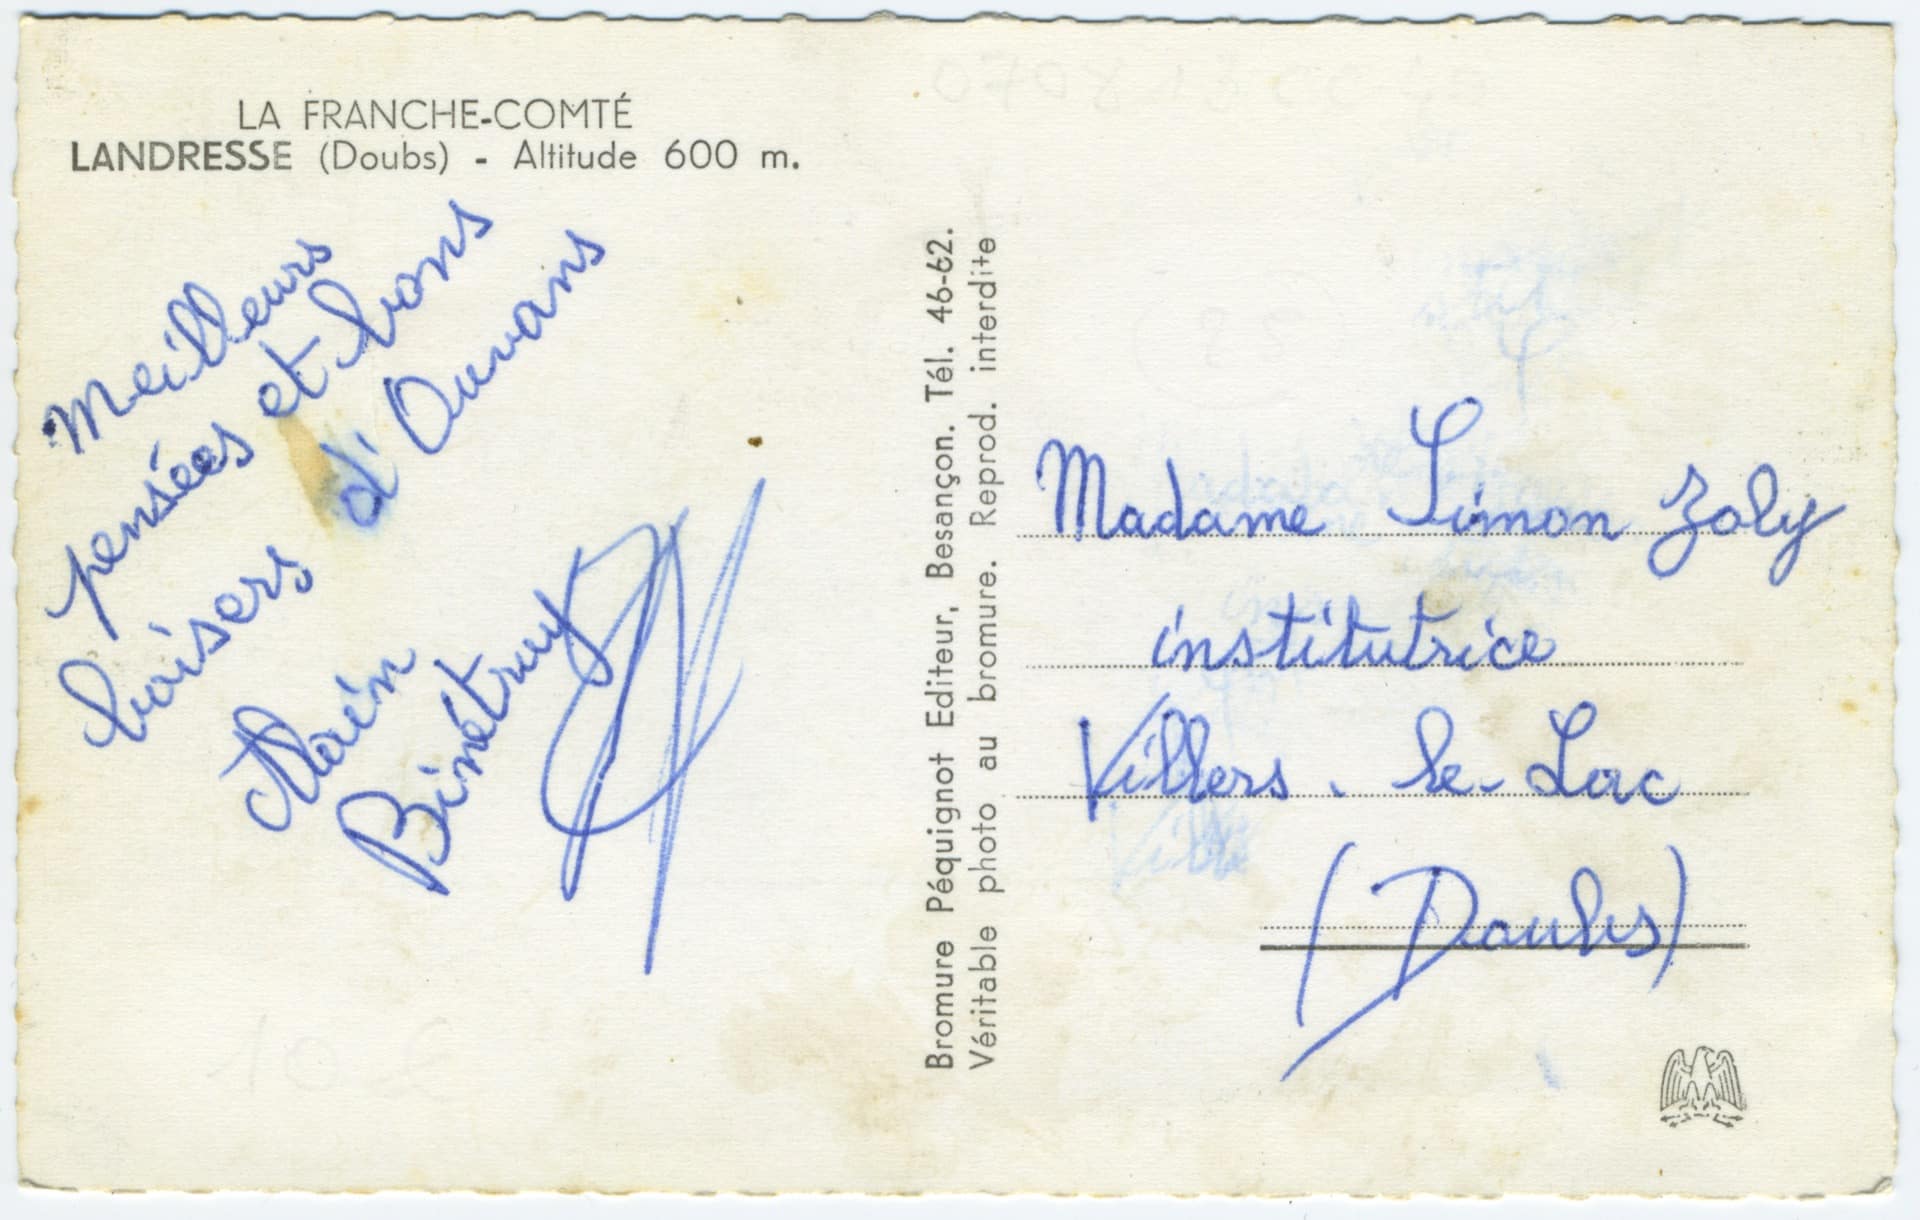 LA FRANCHE-COMTÉ
LANDRESSE (Doubs) - Altitude 600 m.
Meilleurs
pensées et bons
baisers d'Ouvans
Alain
Binétruy
Bromure Péquignot Editeur, Besançon. Tél. 46-62.
Véritable photo au bromure. Reprod. interdite
Madame Simon Zoly
institutrice
Villers-le-Lac
(Doubs)